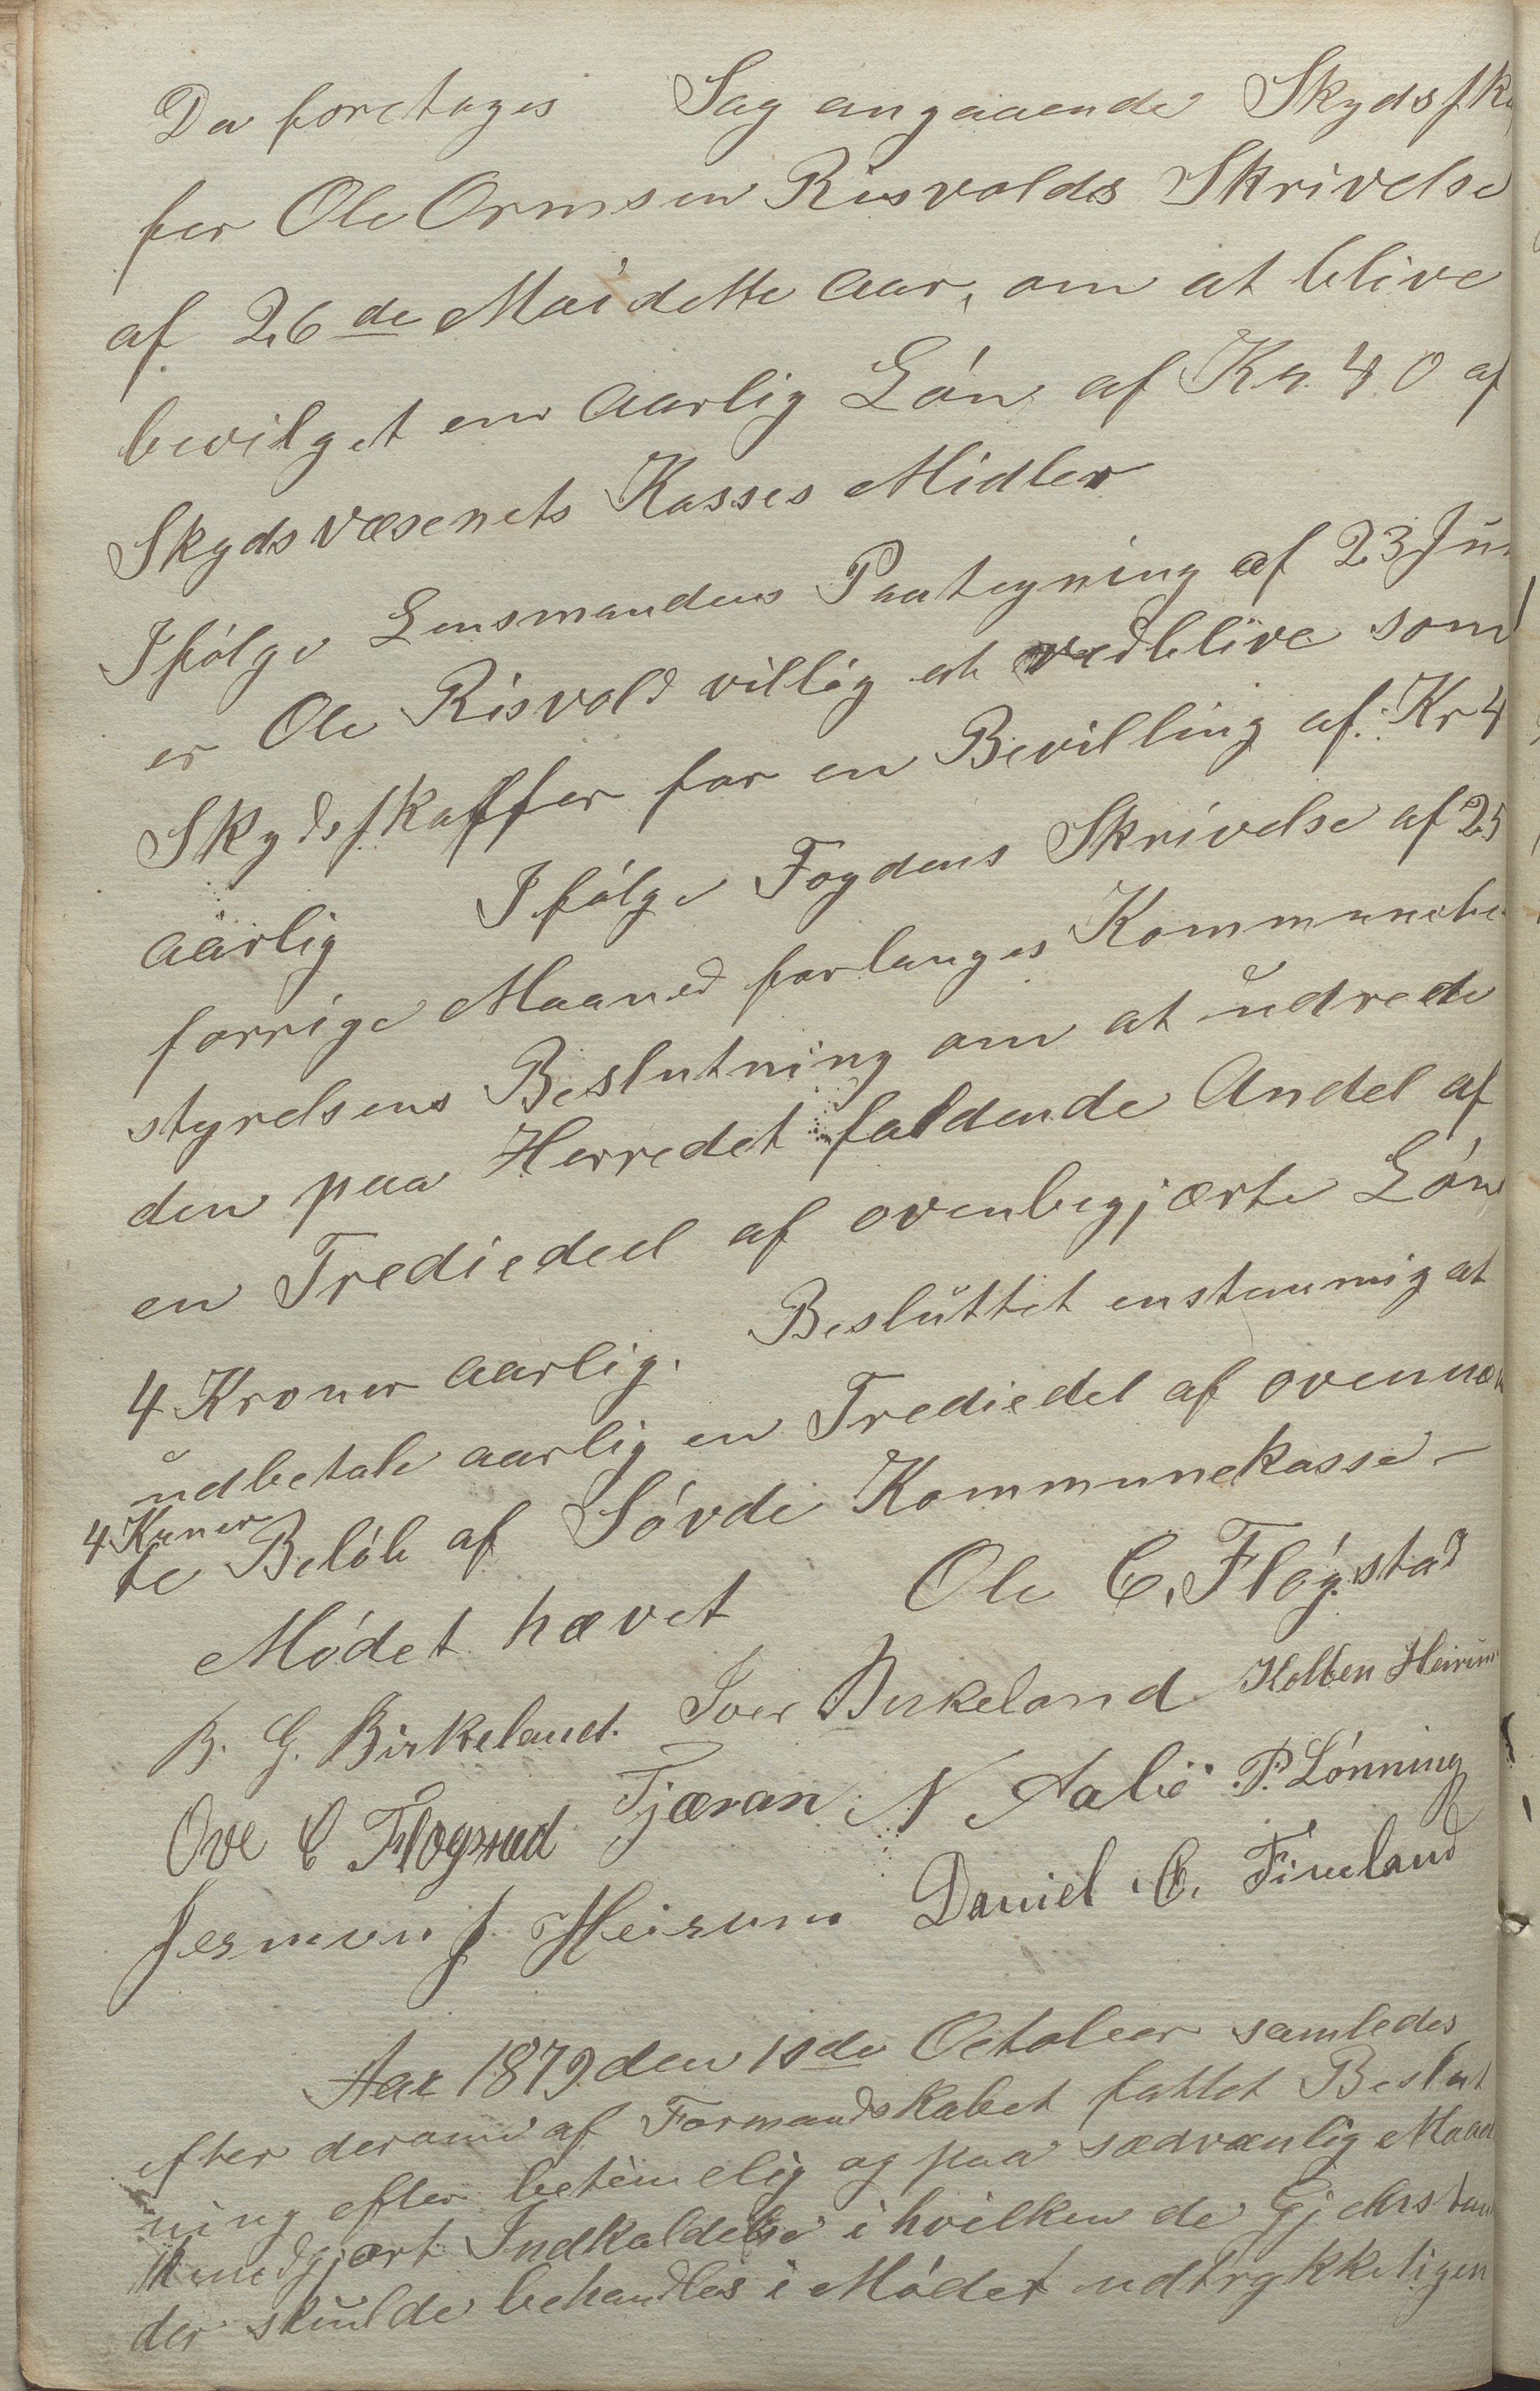 Da foretages Sag angaaende Skydsska
fer Ole Ormsen Risvolds Skrivelse
af 26de Mai dette Aar, om at blive
bevilget en aarlig Løn af Kr. 40 af
Skydsvæsenets Kasses Midler
Ifølge Lensmandens Paategning af 23 Jun
er Ole Risvold villig at vedblive som
Skydsskaffer for en Bevilling af Kr 4
aarlig Ifølge Fogdens Skrivelse af 25
forrige Maaned forlanges Kommunebe
styrelsens Beslutning om at udrede
den paa Herredet faldende Andel af
en Trediedeel af ovenbegjærte Løn
4 Kroner aarlig. Besluttet enstemmig at
udbetale aarlig en Trediedel af ovennæv
4 Kroner
te Beløb af Søvde Kommunekasse –
Mødet hævet Ole C. Fløgstad
B. G. Birkeland. Iver Birkeland Kolben Heirum
Ove C Fløgstad Tjæran N Aalvi P. Lønning
Jermun J Heirum Daniel C. Fineland
Aar 1879 den 10de October samledes
efter derom af Formandskabet fattet Beslut
ning efter betimelig og paa sædvanlig Maad
kundgjort Indkaldelse i hvilken de Gjenstan
der skulde behandles i Mødet udtrykkeligen